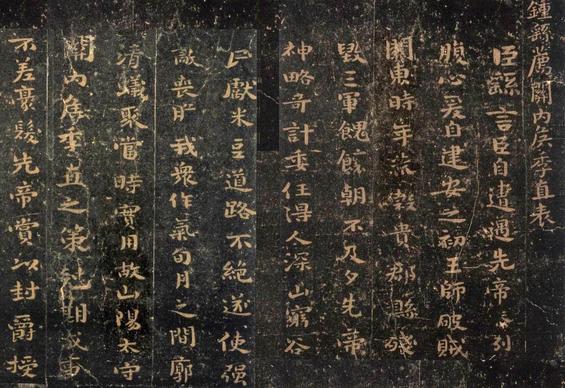 鍾繇薦關內侯季直表
臣繇言臣自遭遇先帝忝列
腹心爰自建安之初王師破賊
關東時年荒穀貴郡縣殘
毀三軍餽饟朝不及夕先帝
神略奇計委任得人深山窮谷
民獻米豆道路不絕遂使强
敵喪膽我衆作氣旬月之間廓
清蟻聚當時實用故山陽太守
關內侯季直之策尅期成事
不差豪髮先帝賞以封爵授